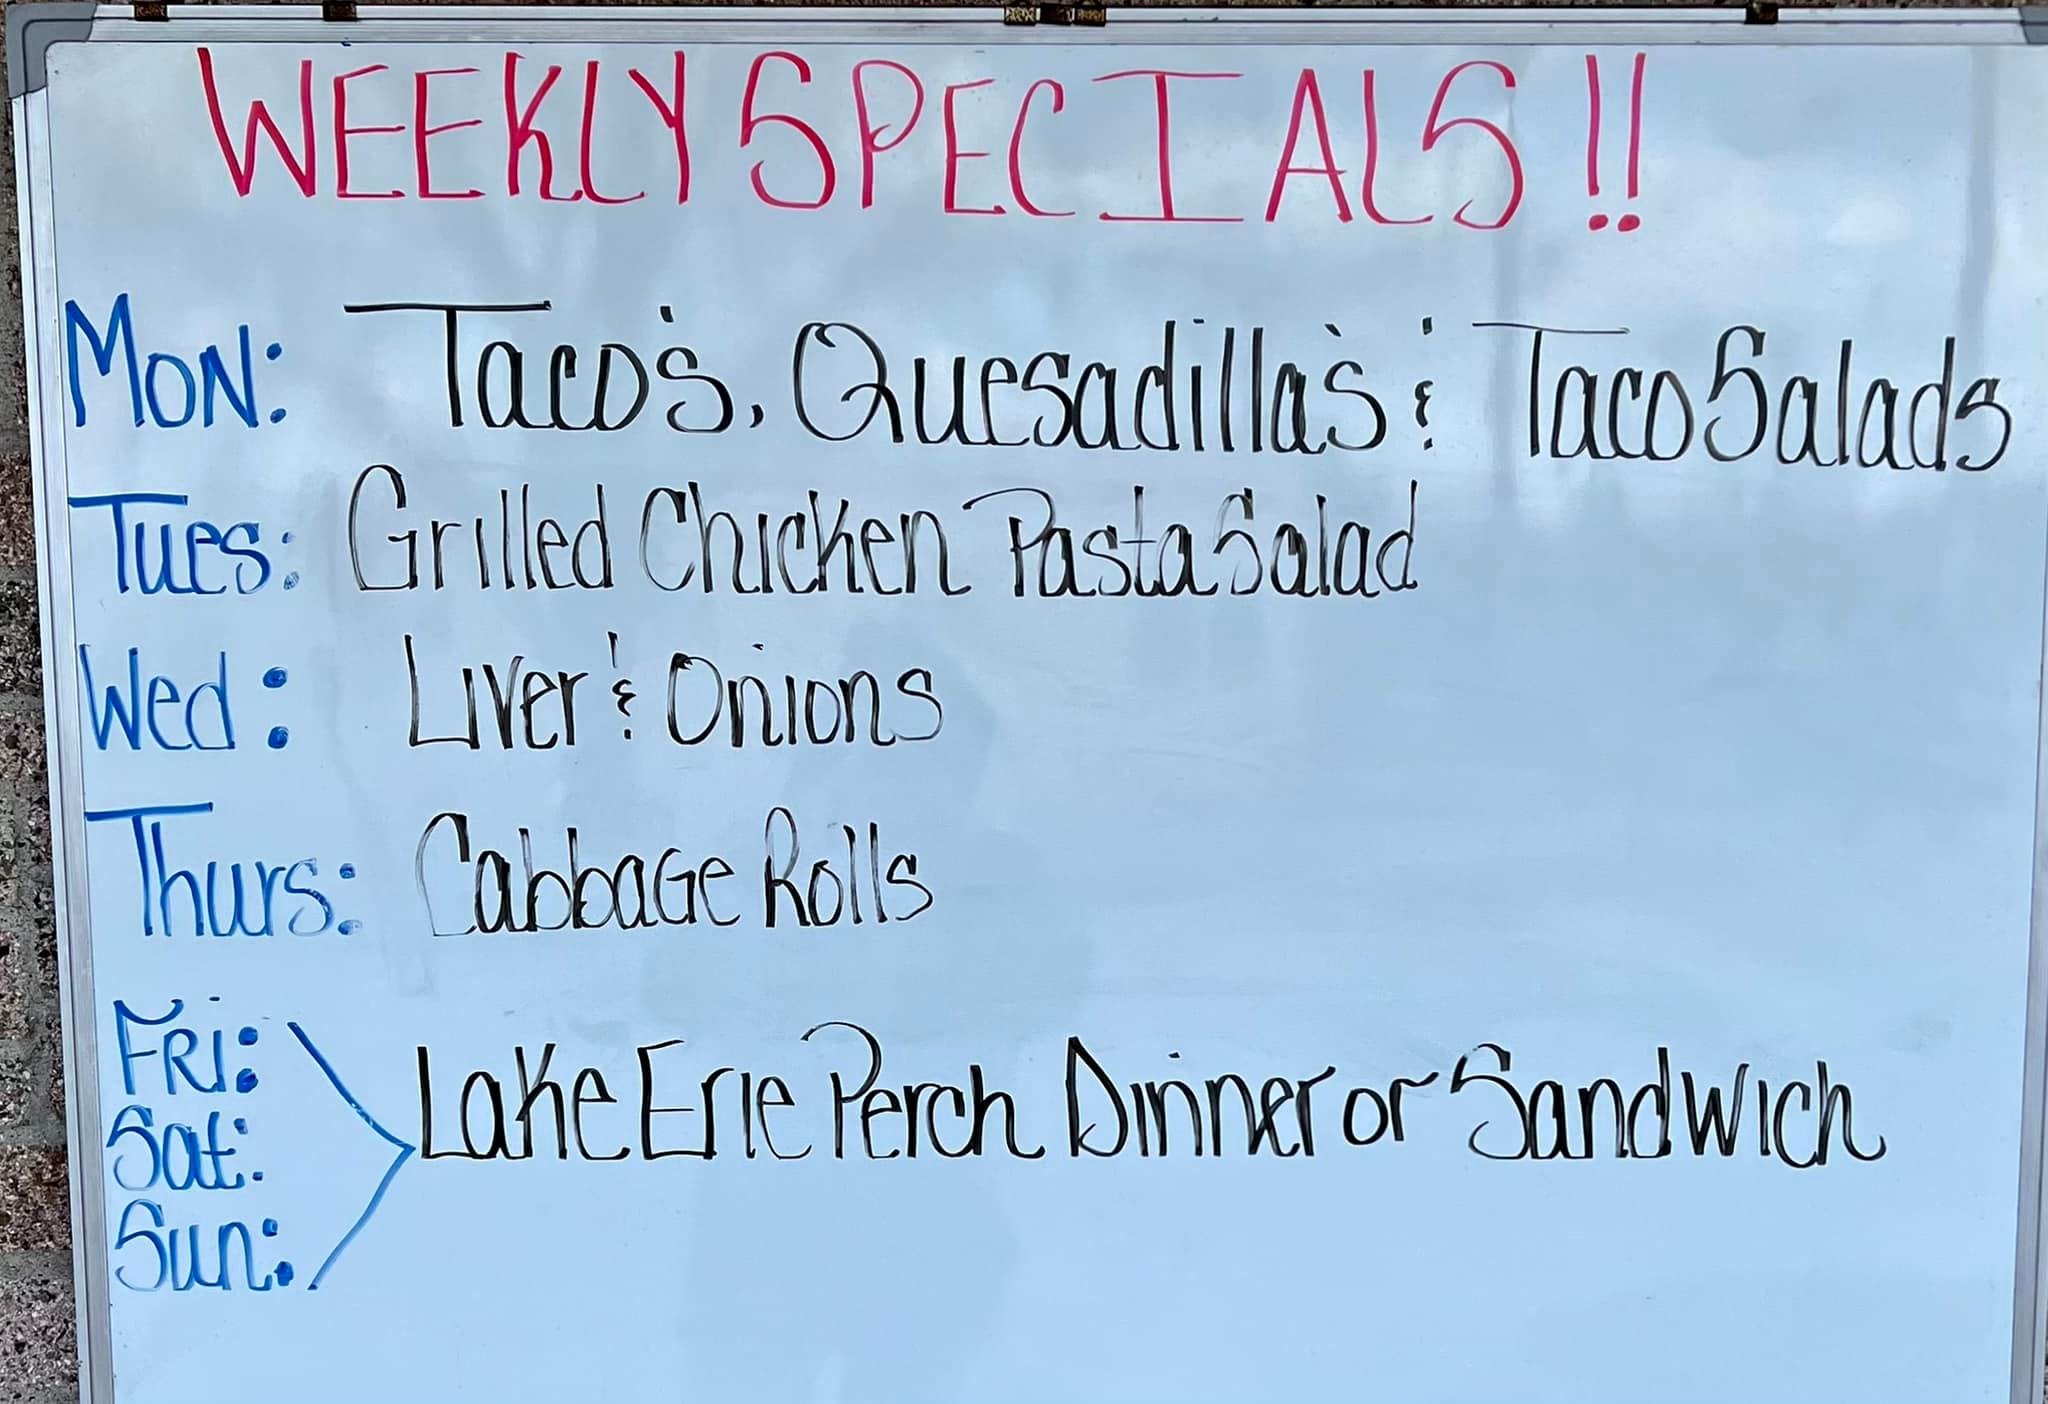 WEEKLY SPECIALS!!
Mon: Taco's, Quesadilla's & Taco Salads
Tues: Grilled Chicken Pasta Salad
Wed: Liver & Onions
Thurs: Cabbage Rolls
Fri:
Sat: Lake Erie Perch Dinner or Sandwich
Sun: